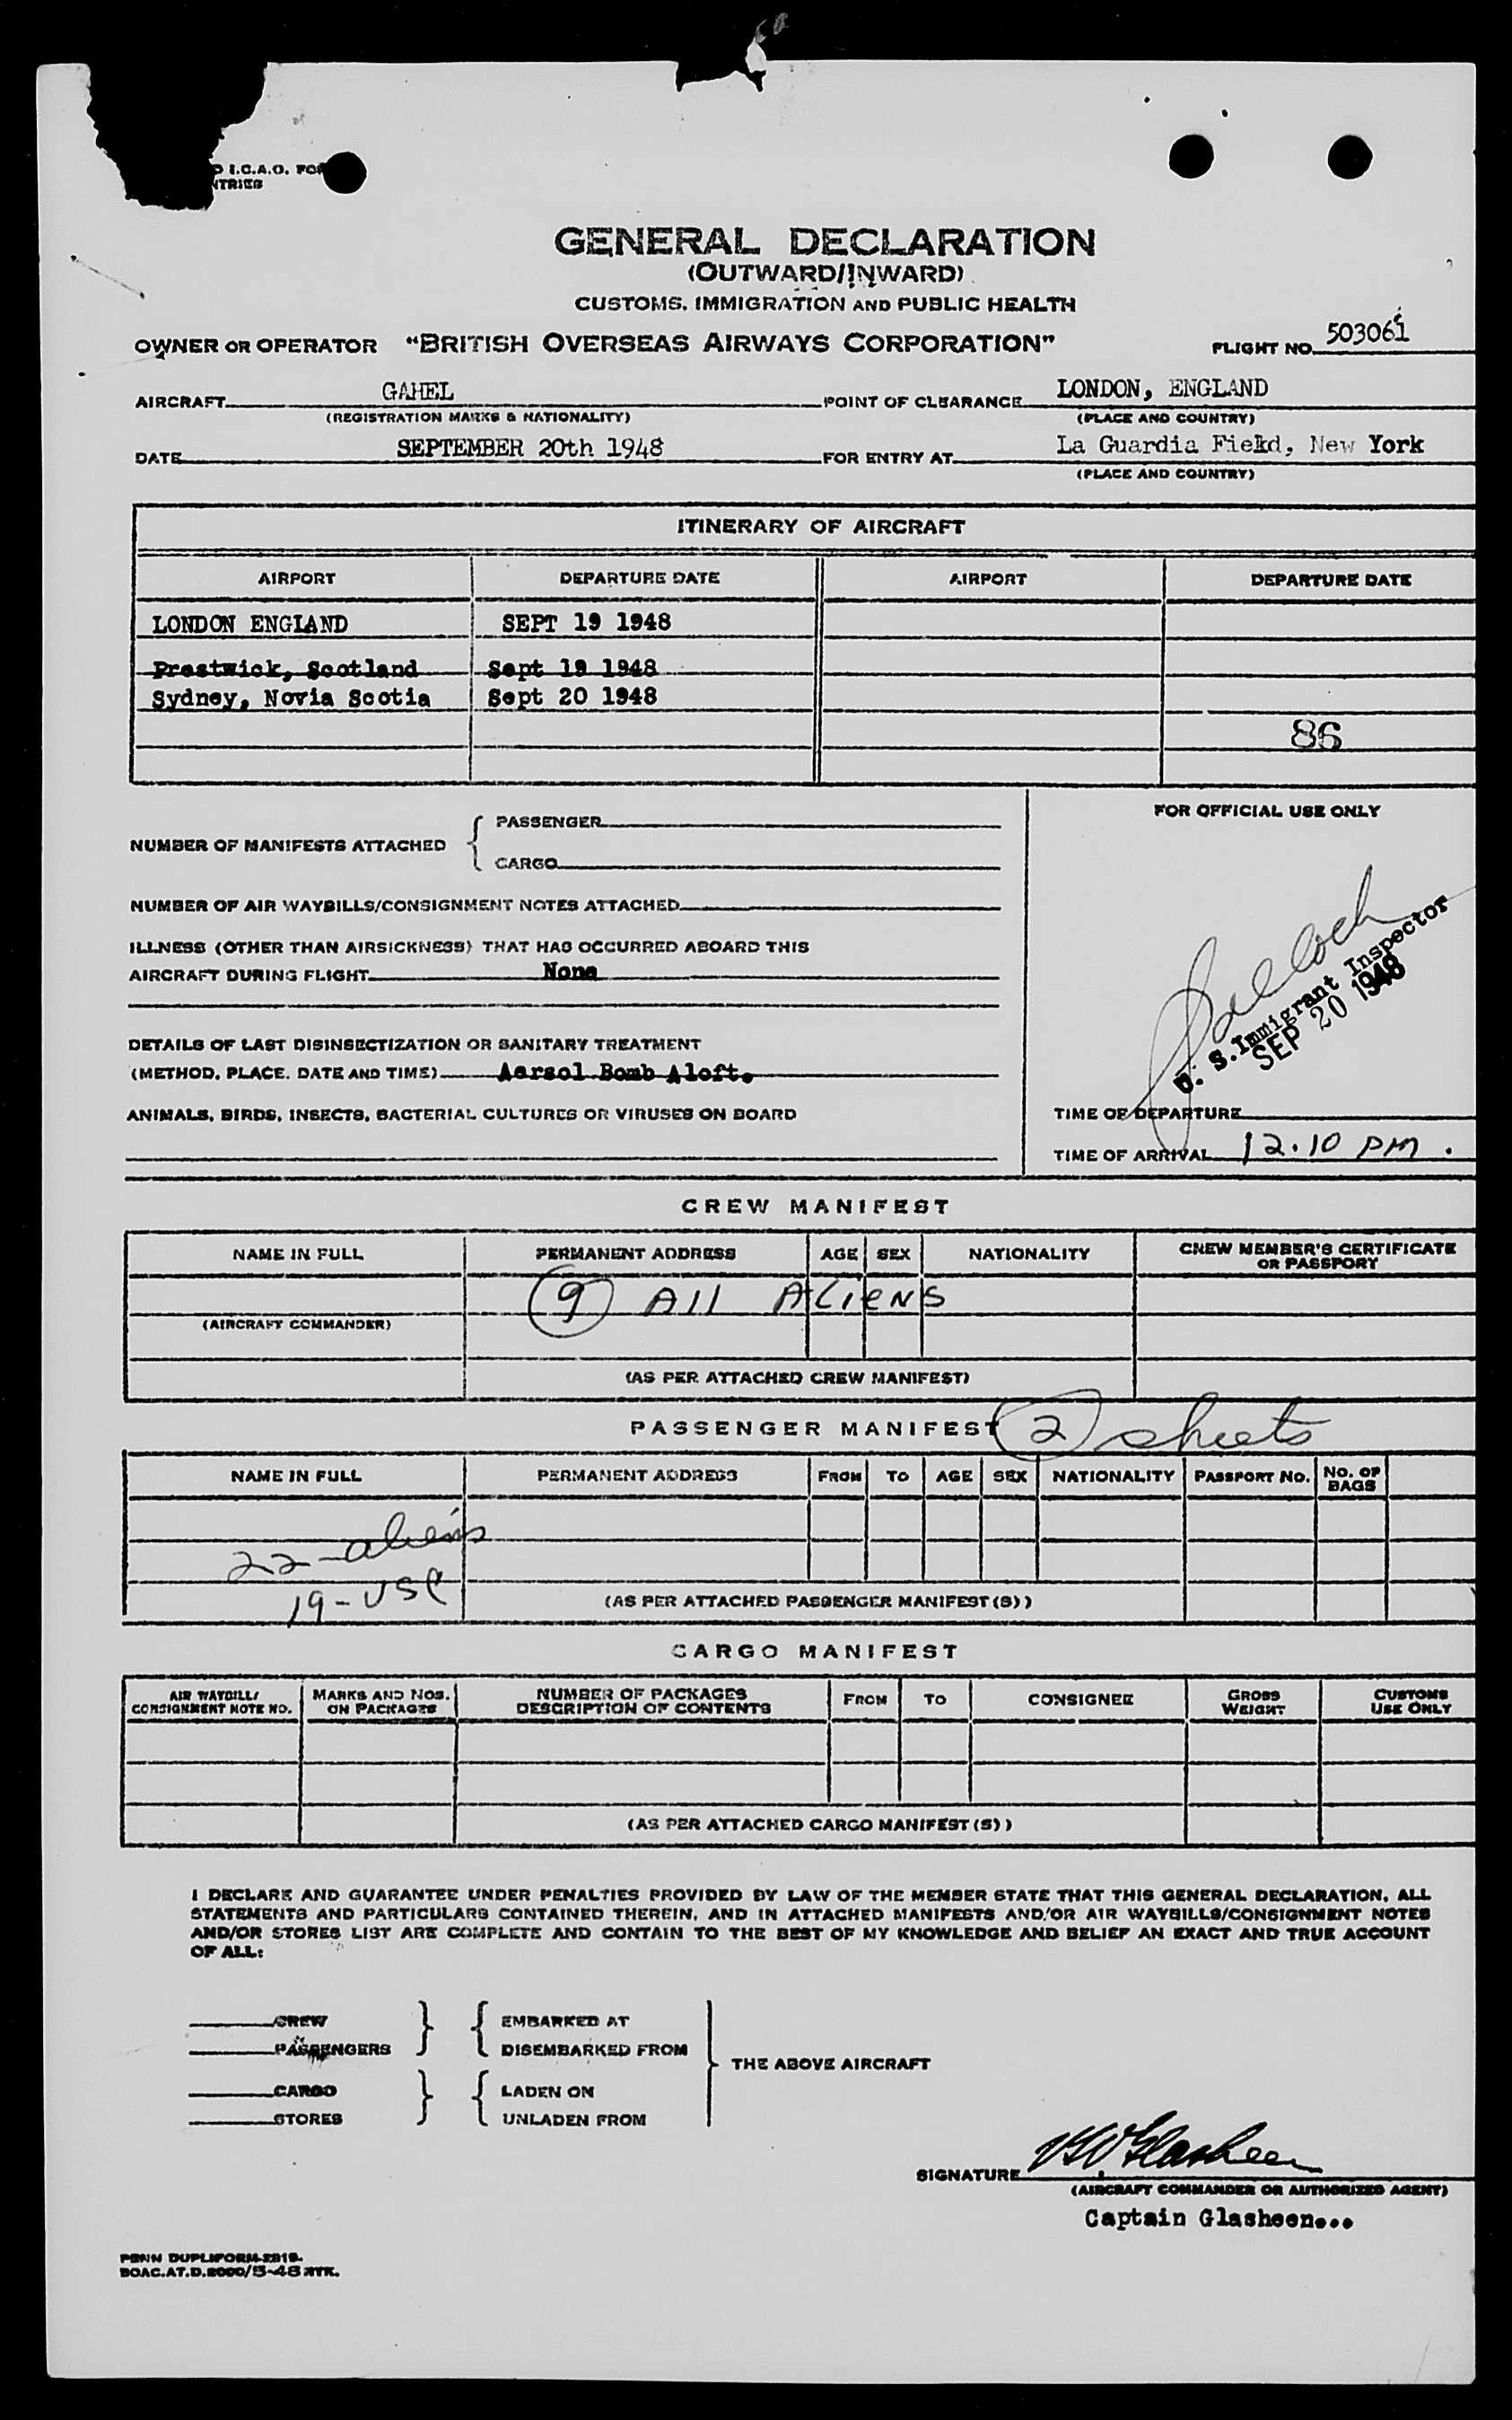 I.C.A.O. FOR
NTRIES
GENERAL DECLARATION
(OUTWARD/INWARD)
CUSTOMS, IMMIGRATION AND PUBLIC HEALTH
OWNER OR OPERATOR "BRITISH OVERSEAS AIRWAYS CORPORATION" FLIGHT NO. 503061
AIRCRAFT GAHEL POINT OF CLEARANCE LONDON, ENGLAND
(REGISTRATION MARKS & NATIONALITY) (PLACE AND COUNTRY)
DATE SEPTEMBER 20th 1948 FOR ENTRY AT La Guardia Field, New York
(PLACE AND COUNTRY)
ITINERARY OF AIRCRAFT
AIRPORT DEPARTURE DATE AIRPORT DEPARTURE DATE
LONDON ENGLAND SEPT 19 1948
Prestwick, Scotland Sept 19 1948
Sydney, Novia Scotia Sept 20 1948
86
FOR OFFICIAL USE ONLY
NUMBER OF MANIFESTS ATTACHED { PASSENGER
CARGO
NUMBER OF AIR WAYBILLS/CONSIGNMENT NOTES ATTACHED
ILLNESS (OTHER THAN AIRSICKNESS) THAT HAS OCCURRED ABOARD THIS
AIRCRAFT DURING FLIGHT None
U. S. Immigrant Inspector
SEP 20 1948
DETAILS OF LAST DISINSECTIZATION OR SANITARY TREATMENT
(METHOD, PLACE, DATE AND TIME) Aersol Bomb Aloft.
ANIMALS, BIRDS, INSECTS, BACTERIAL CULTURES OR VIRUSES ON BOARD
TIME OF DEPARTURE
TIME OF ARRIVAL 12.10 PM.
CREW MANIFEST
NAME IN FULL PERMANENT ADDRESS AGE SEX NATIONALITY CREW MEMBER'S CERTIFICATE OR PASSPORT
9 All Aliens
(AIRCRAFT COMMANDER)
(AS PER ATTACHED CREW MANIFEST)
PASSENGER MANIFEST 2 sheets
NAME IN FULL PERMANENT ADDRESS FROM TO AGE SEX NATIONALITY PASSPORT NO. NO. OF BAGS
22 - aliens
19 - USC
(AS PER ATTACHED PASSENGER MANIFEST (S))
CARGO MANIFEST
AIR WAYBILL/ CONSIGNMENT NOTE NO. MARKS AND NOS. ON PACKAGES NUMBER OF PACKAGES DESCRIPTION OF CONTENTS FROM TO CONSIGNEE GROSS WEIGHT CUSTOMS USE ONLY
(AS PER ATTACHED CARGO MANIFEST (S))
I DECLARE AND GUARANTEE UNDER PENALTIES PROVIDED BY LAW OF THE MEMBER STATE THAT THIS GENERAL DECLARATION, ALL
STATEMENTS AND PARTICULARS CONTAINED THEREIN, AND IN ATTACHED MANIFESTS AND/OR AIR WAYBILLS/CONSIGNMENT NOTES
AND/OR STORES LIST ARE COMPLETE AND CONTAIN TO THE BEST OF MY KNOWLEDGE AND BELIEF AN EXACT AND TRUE ACCOUNT
OF ALL:
CREW } { EMBARKED AT
PASSENGERS DISEMBARKED FROM
THE ABOVE AIRCRAFT
CARGO } { LADEN ON
STORES UNLADEN FROM
SIGNATURE Glasheen
(AIRCRAFT COMMANDER OR AUTHORIZED AGENT)
Captain Glasheen...
PENN DUPLIFORM-2219-
BOAC.AT.D.2000/5-48 NYK.